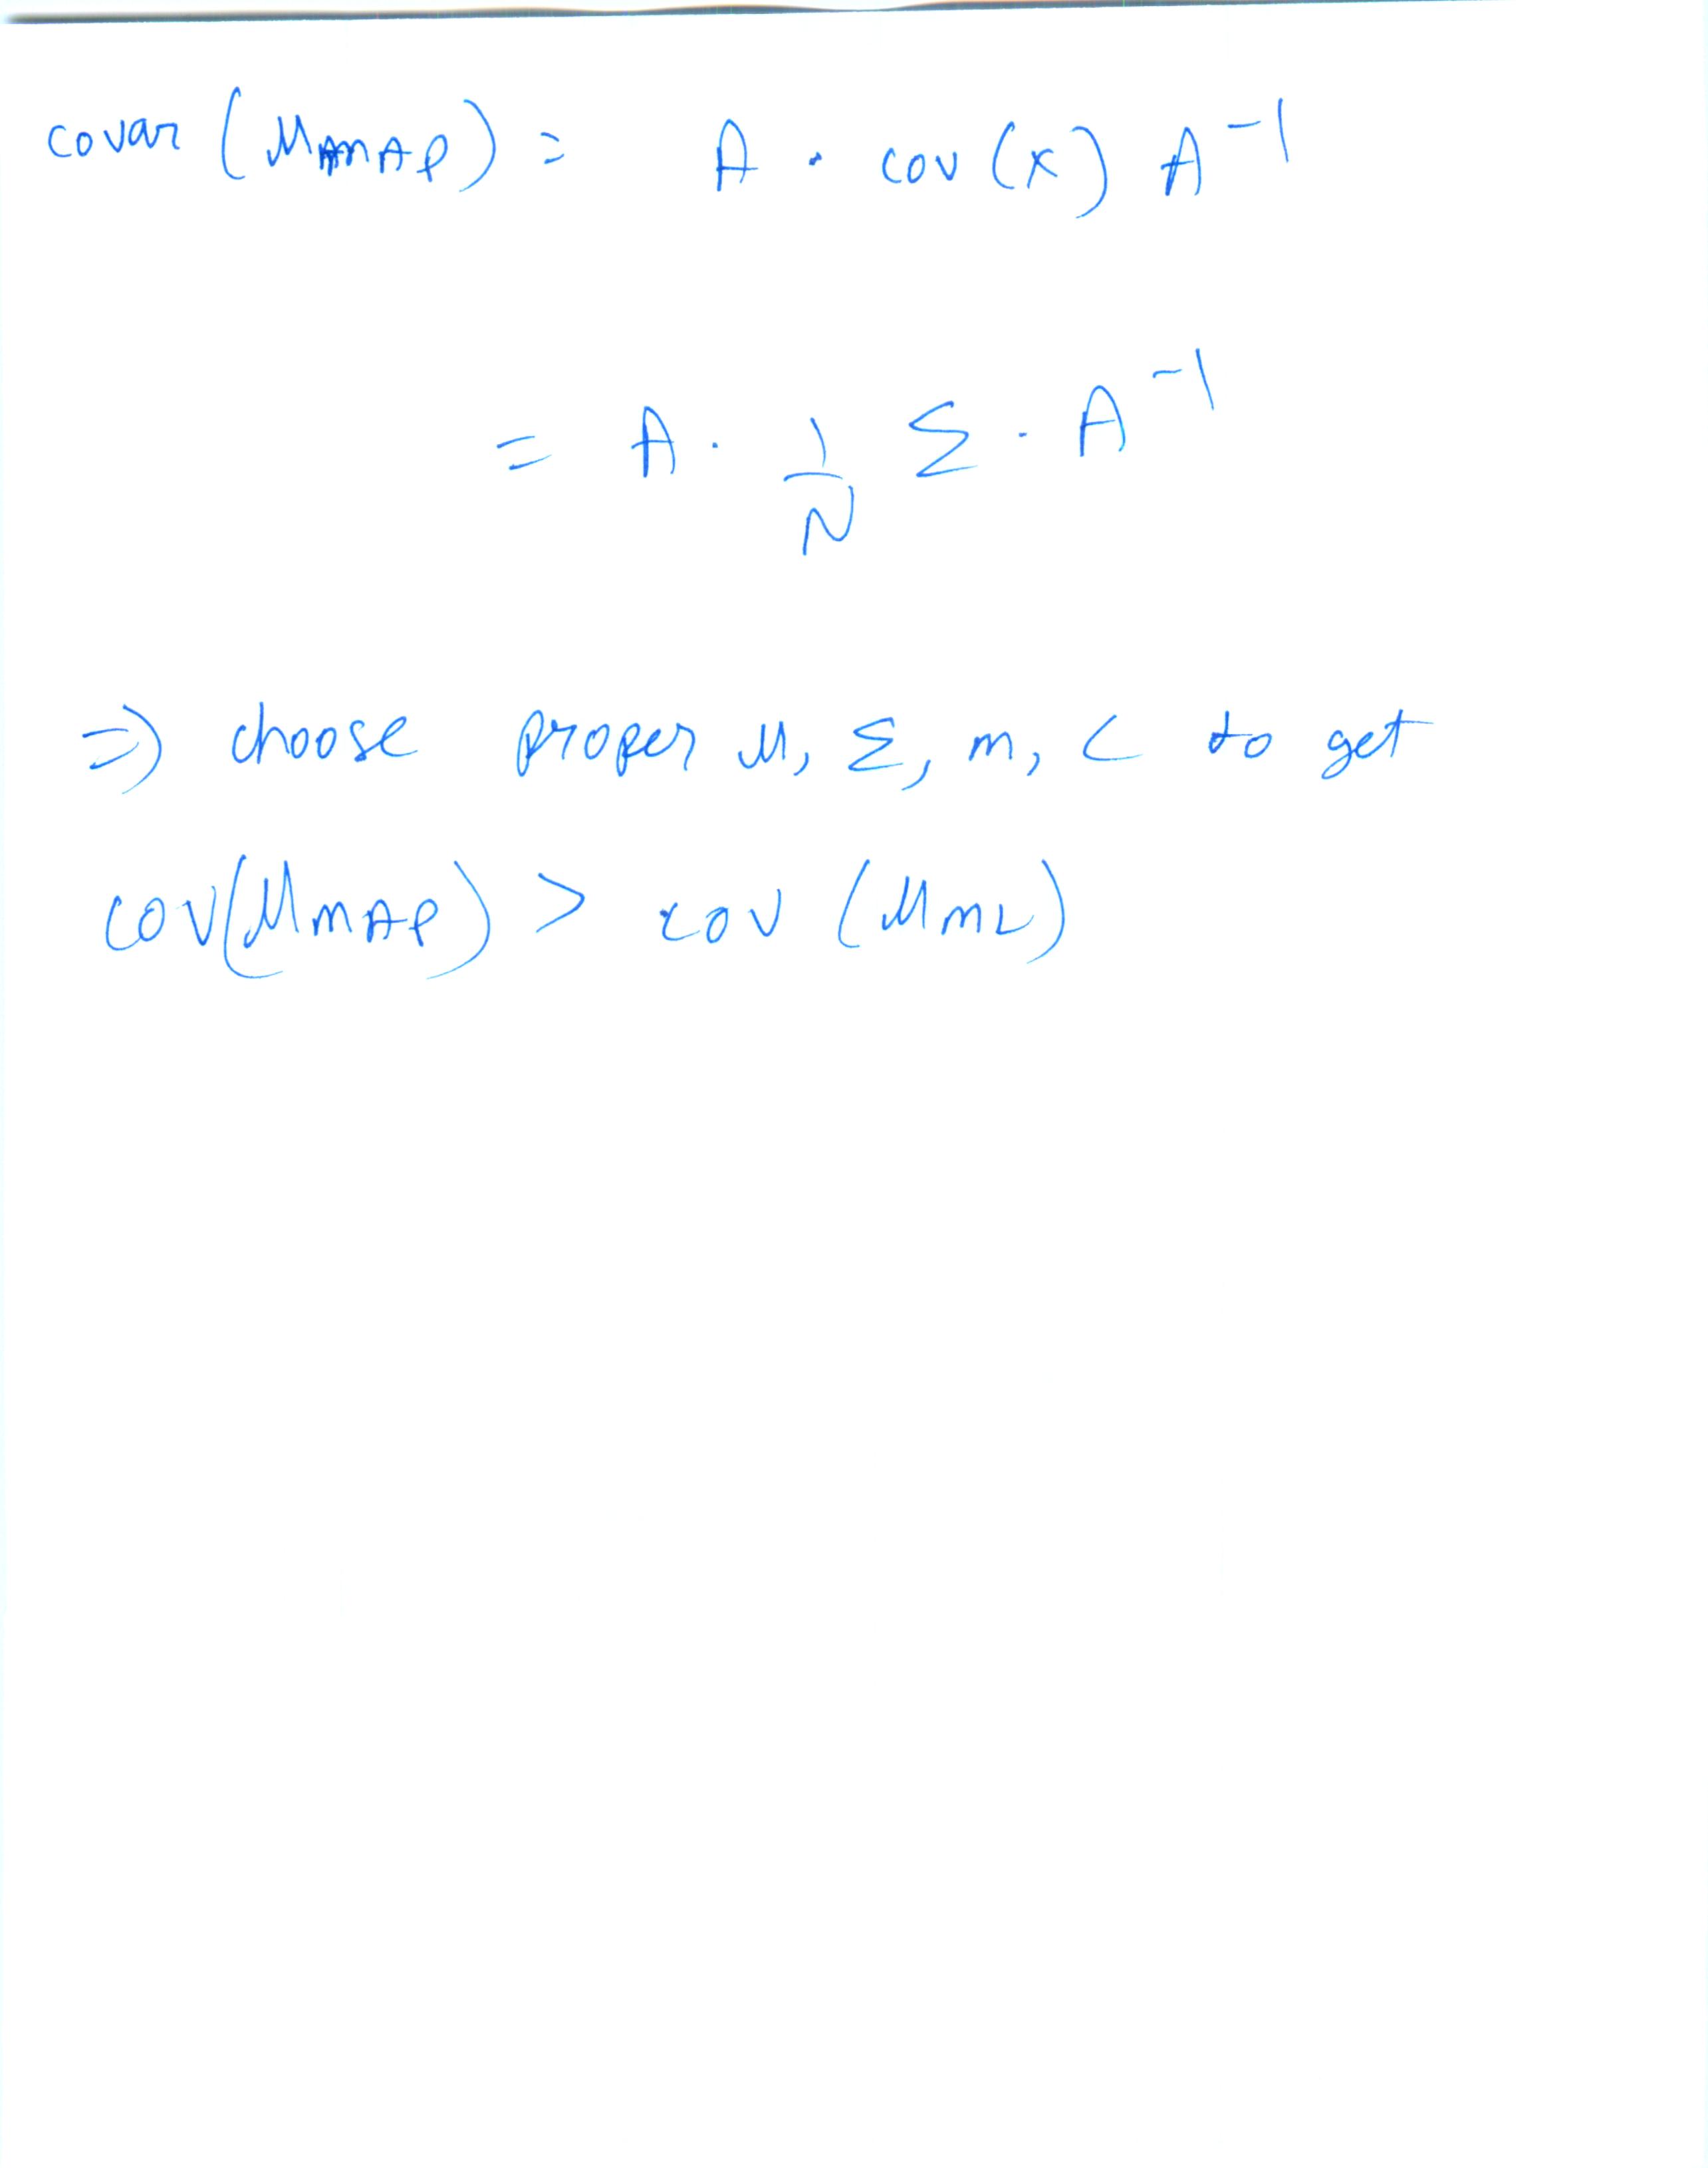 covar (μ_MAP) = A · cov (x) A^-1
= A · 1/N Σ · A^-1
=> choose proper μ, Σ, m, C to get
cov(μ_MAP) > cov (μ_ML)